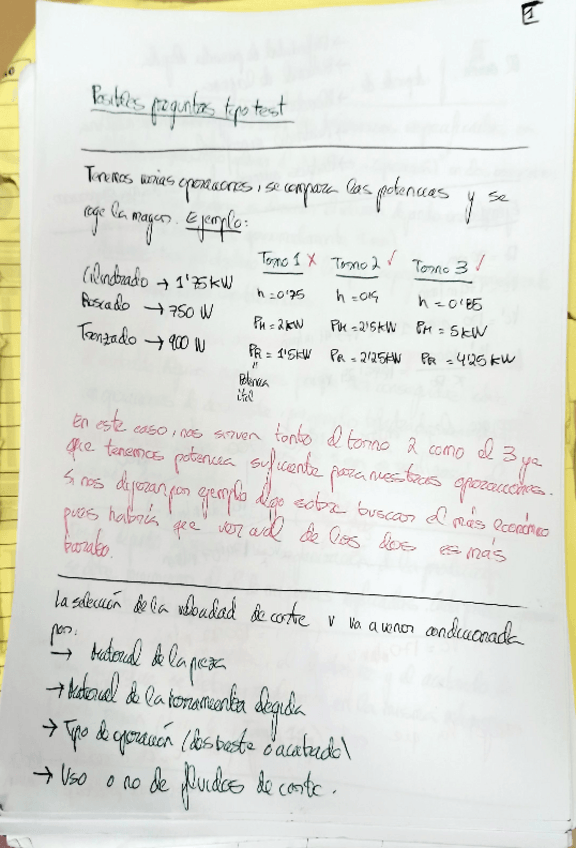 1
Posibles preguntas tipo test
Tenemos varias operaciones, se compara las potencias y se
coge la mayor. Ejemplo:
Torno 1 ✗ Torno 2 ✓ Torno 3 ✓
Cilindrado → 1'75 kW
h = 0'75 h = 0'9 h = 0'85
Roscado → 750 W
PM = 2kW PM = 2'5kW PM = 5 kW
Tronzado → 900 W
PR = 1'5kW PR = 2'25kW PR = 4'25 kW
"
Potencia
útil
En este caso, nos sirven tanto el torno 2 como el 3 ya
que tenemos potencia suficiente para nuestras operaciones.
Si nos dijeran por ejemplo algo sobre buscar el más económico
pues habría que ver cual de los dos es más
barato.
La selección de la velocidad de corte v va a venir condicionada
por:
→ Material de la pieza
→ Material de la herramienta elegida
→ Tipo de operación (desbaste o acabado)
→ Uso o no de fluidos de corte.